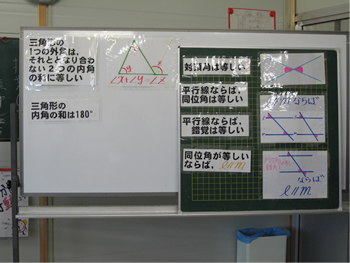 三角形の
1つの外角は、
それととなり合わ
ない2つの内角
の和に等しい
三角形の
内角の和は180°
対頂角は等しい
平行線ならば,
同位角は等しい
平行線ならば,
錯覚は等しい
同位角が等しい
ならば, ℓ//m
ℓ//mならば
ならば
ℓ//m